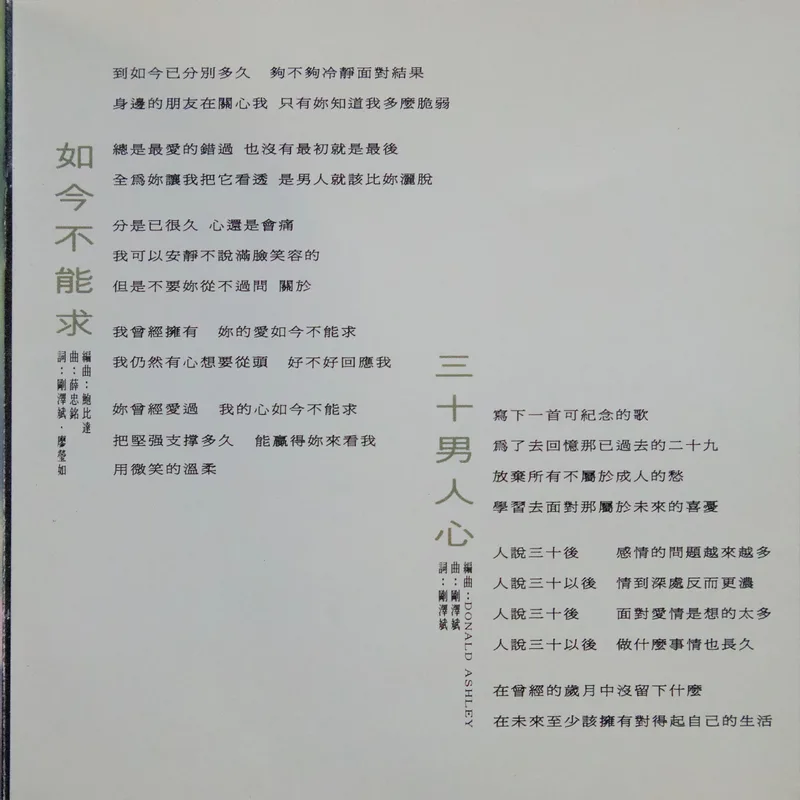 如今不能求
編曲：鮑比達
曲：薛忠銘
詞：剛澤斌．廖瑩如
到如今已分別多久　夠不夠冷靜面對結果
身邊的朋友在關心我 只有妳知道我多麼脆弱
總是最愛的錯過 也沒有最初就是最後
全為妳讓我把它看透 是男人就該比妳灑脫
分是已很久 心還是會痛
我可以安靜不說滿臉笑容的
但是不要妳從不過問 關於
我曾經擁有　妳的愛如今不能求
我仍然有心想要從頭　好不好回應我
妳曾經愛過　我的心如今不能求
把堅强支撐多久　能贏得妳來看我
用微笑的溫柔
三十男人心
編曲：DONALD ASHLEY
曲：剛澤斌
詞：剛澤斌
寫下一首可紀念的歌
為了去回憶那已過去的二十九
放棄所有不屬於成人的愁
學習去面對那屬於未來的喜憂
人說三十後　　感情的問題越來越多
人說三十以後　情到深處反而更濃
人說三十後　　面對愛情是想的太多
人說三十以後　做什麼事情也長久
在曾經的歲月中沒留下什麼
在未來至少該擁有對得起自己的生活